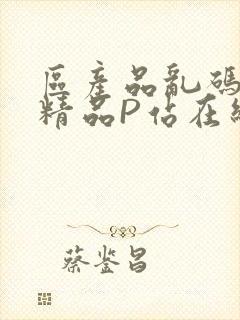 區產品亂碼
精品P佔在線
蔡鉴昌